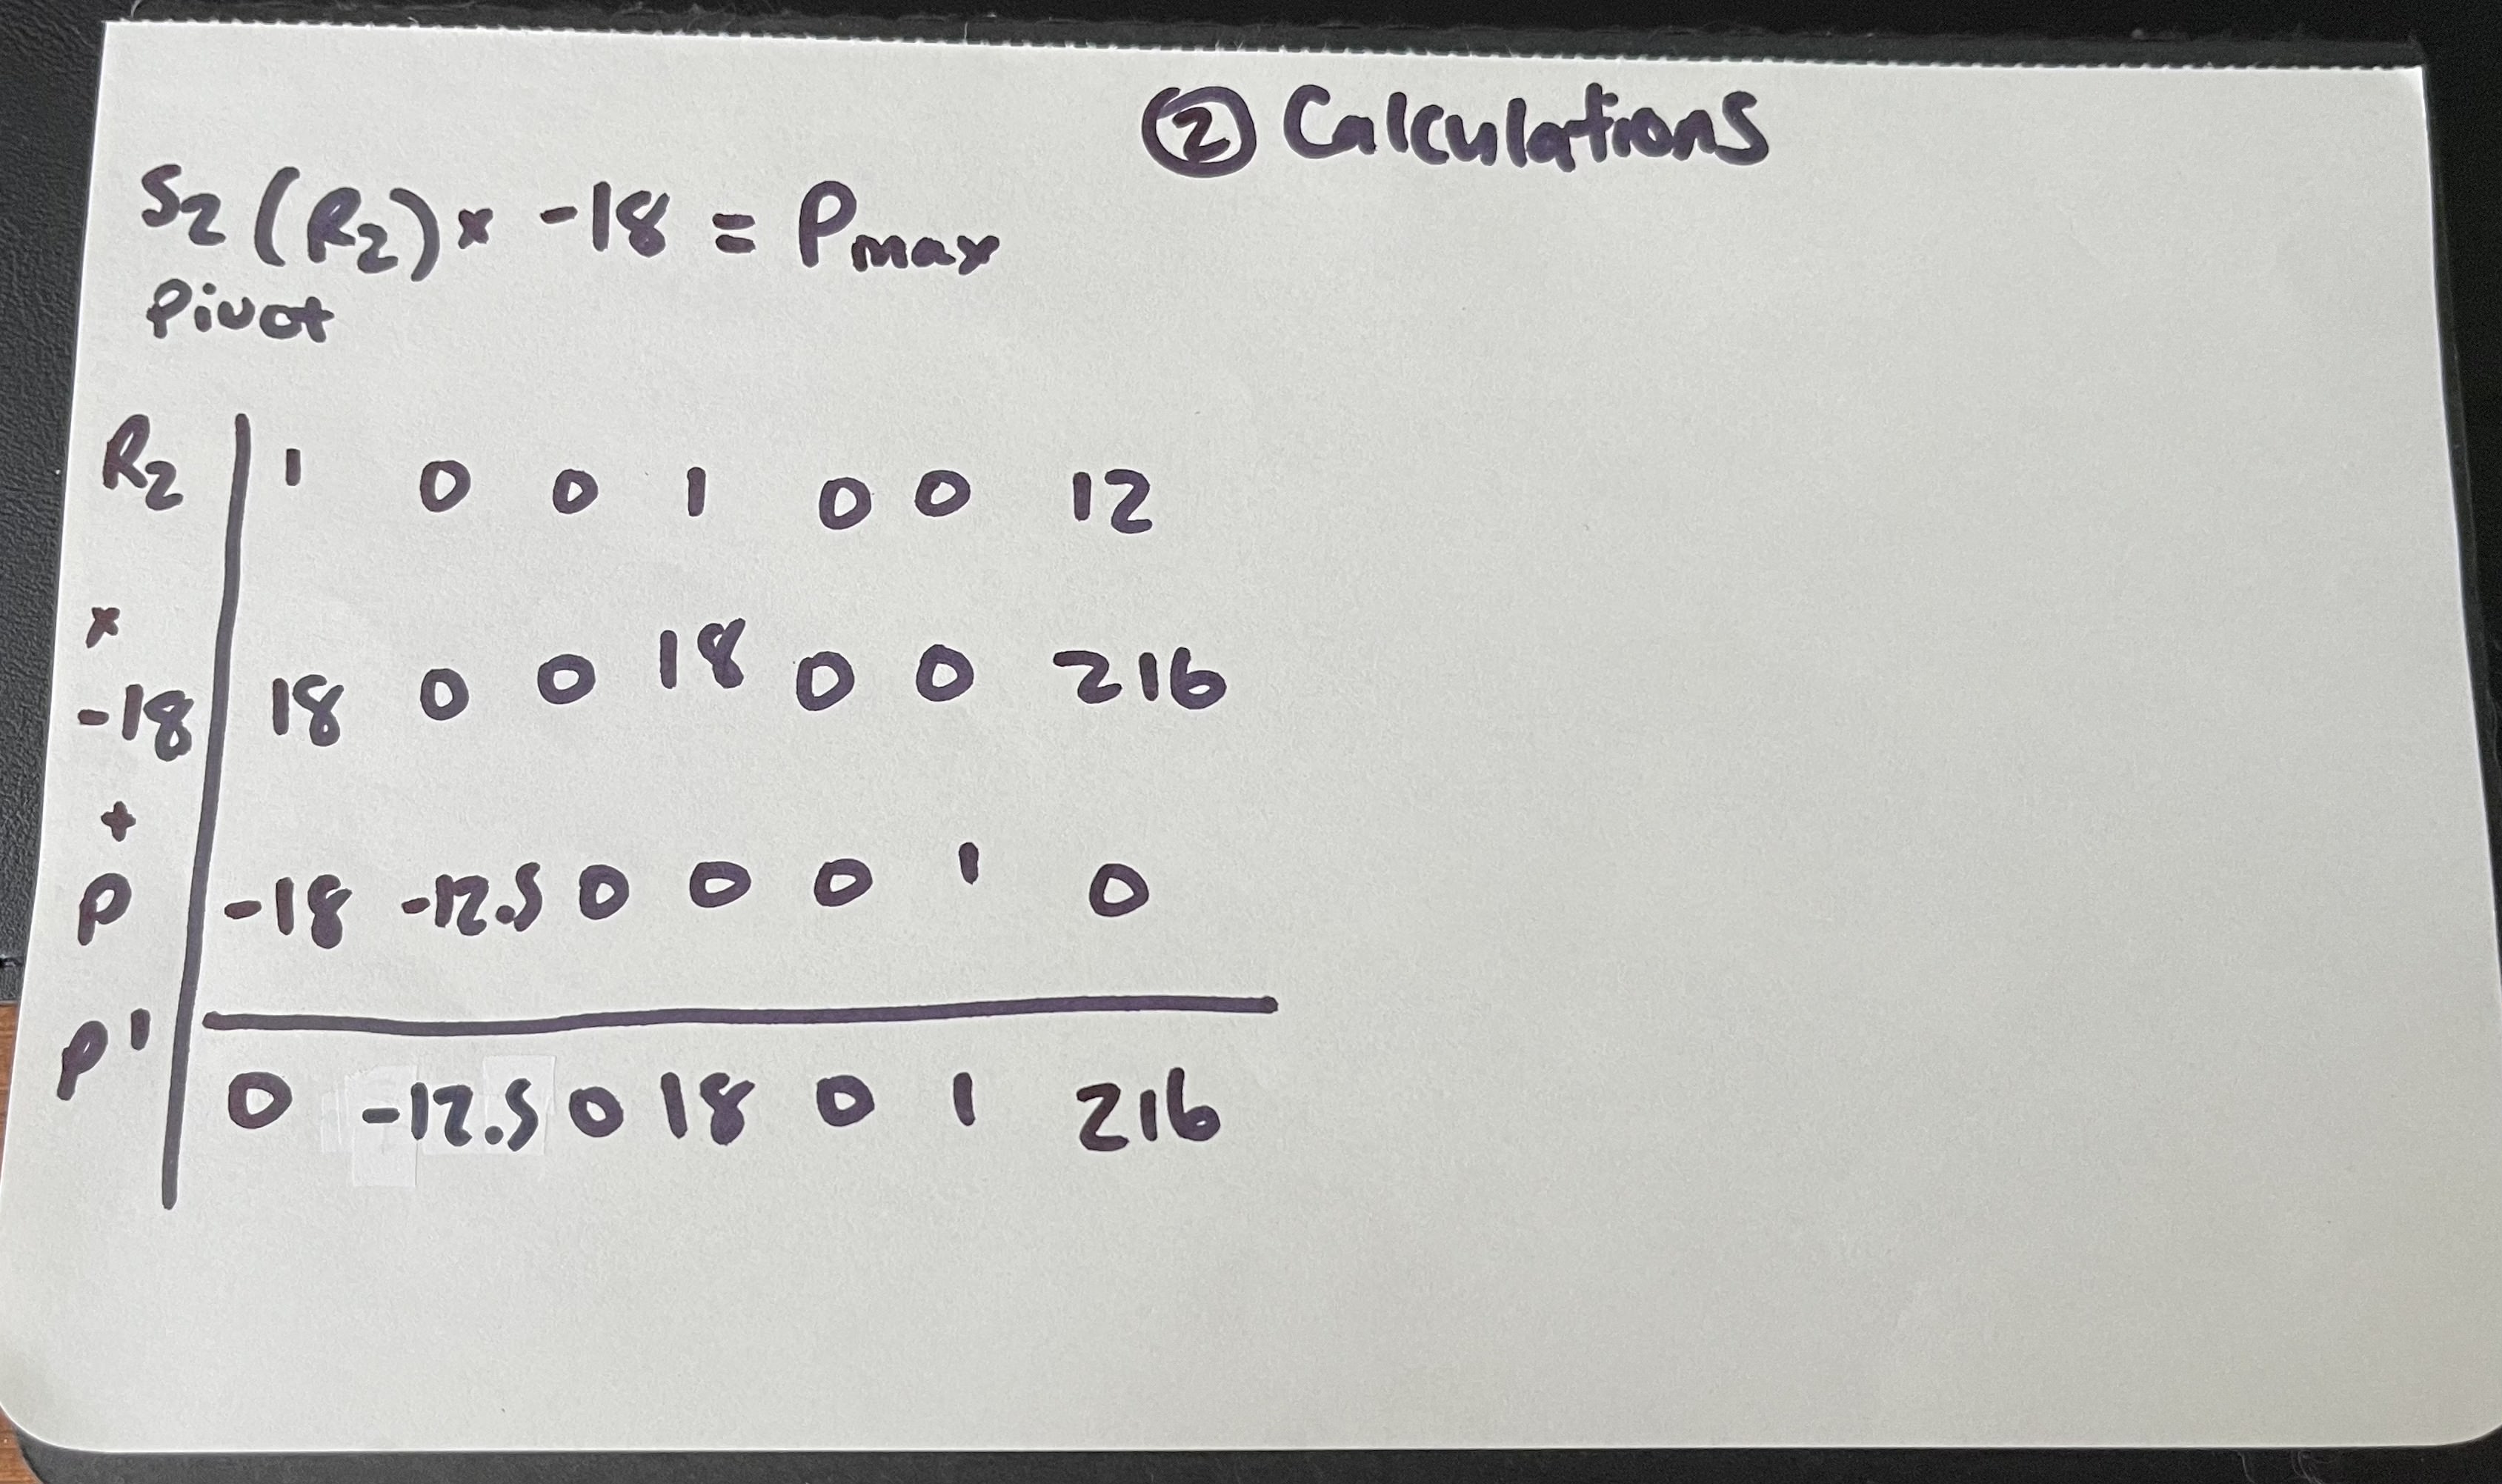 ② Calculations
S2 (R2) x -18 = Pmax
Pivot
R2 1 0 0 1 0 0 12
x
-18 18 0 0 18 0 0 216
+
P -18 -12.5 0 0 0 1 0
P' 0 -12.5 0 18 0 1 216